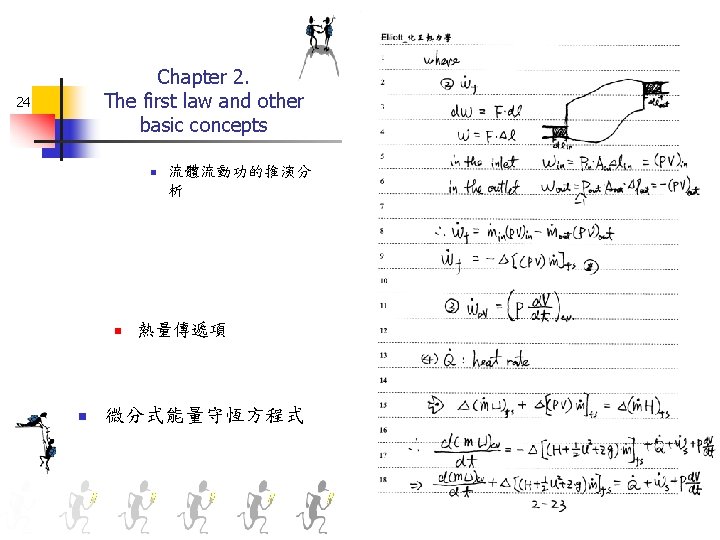 24
Chapter 2.
The first law and other
basic concepts
流體流動功的推演分
析
熱量傳遞項
微分式能量守恆方程式
Elliott_化工熱力學
1 where
2 ② Ẇf
3 dW = F·dl
4 W = F·Δl
5 in the inlet Win = Pin·AinΔlin = (PV)in
6 in the outlet Wout = Pout Aout·Δlout = -(PV)out
7
8 ∴ Ẇf = ṁin(PV)in - ṁout(PV)out
9 Ẇf = -Δ[(PV)ṁ]fs
10
11 ③ ẆEV = (P dV/dt)c.v.
12
13 (4) Q̇ : heat rate
14
15 ⇒ Δ(ṁU)fs + Δ[(PV)ṁ]fs = Δ(ṁH)fs
16
17 ∴ d(mU)cv/dt = -Δ[(H+½u²+zg)ṁ]fs + Q̇ + Ẇs + P dV/dt
18 ⇒ d(mU)cv/dt + Δ[(H+½u²+zg)ṁ]fs = Q̇ + Ẇs + P dV/dt
2-23